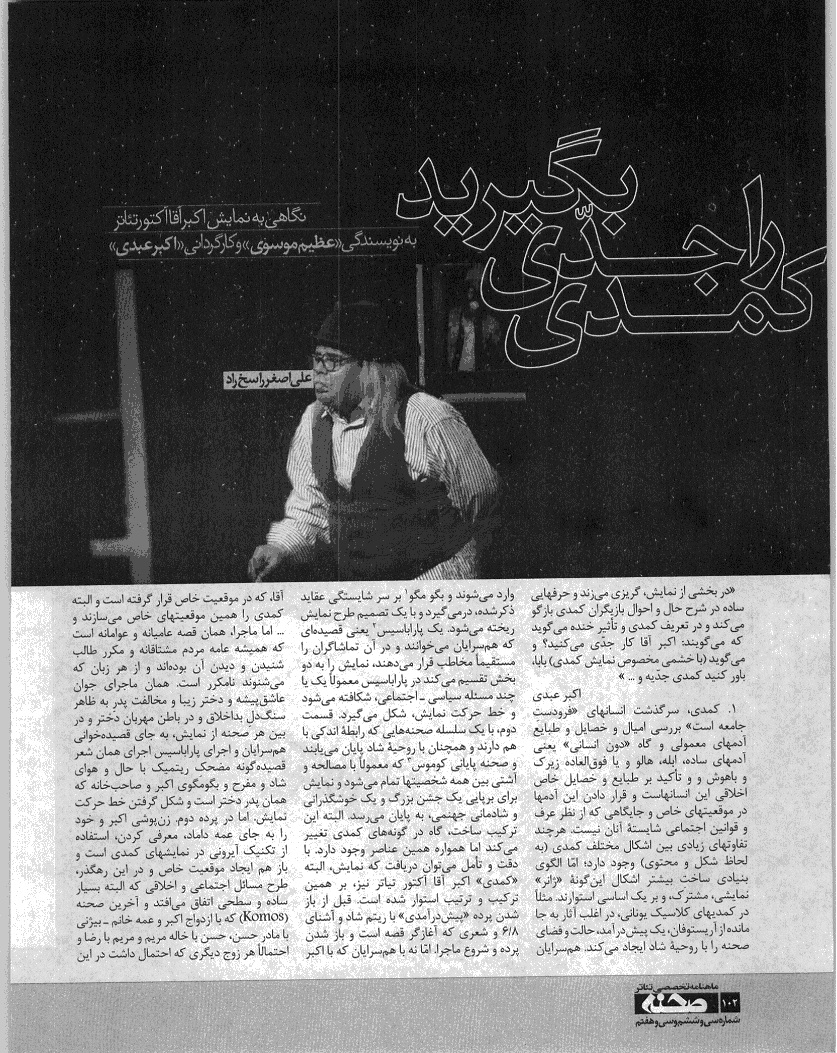 کمدی
را جدّی
بگیرید
نگاهی به نمایش اکبر آقا آکتور تئاتر
به نویسندگی «عظیم موسوی» و کارگردانی «اکبر عبدی»
علی اصغر راسخ راد
«در بخشی از نمایش، گریزی می‌زند و حرفهایی
ساده در شرح حال و احوال بازیگران کمدی بازگو
می‌کند و در تعریف کمدی و تأثیر خنده می‌گوید
که می‌گویند: اکبر آقا کار جدّی می‌کنید؟ و
می‌گوید (با خشمی مخصوص نمایش کمدی) بابا،
باور کنید کمدی جدیه و ... »
اکبر عبدی
۱. کمدی، سرگذشت انسانهای «فرودست
جامعه است» بررسی امیال و خصایل و طبایع
آدمهای معمولی و گاه «دون انسانی» یعنی
آدمهای ساده، ابله، هالو و یا فوق‌العاده زیرک
و باهوش و و تأکید بر طبایع و خصایل خاص
اخلاقی این انسانهاست و قرار دادن این آدمها
در موقعیتهای خاص و جایگاهی که از نظر عرف
و قوانین اجتماعی شایستهٔ آنان نیست. هرچند
تفاوتهای زیادی بین اشکال مختلف کمدی (به
لحاظ شکل و محتوی) وجود دارد؛ امّا الگوی
بنیادی ساخت بیشتر اشکال این‌گونهٔ «ژانر»
نمایشی، مشترک، و بر یک اساسی استوارند. مثلاً
در کمدیهای کلاسیک یونانی، در اغلب آثار به جا
مانده از آریستوفان، یک پیش‌درآمد، حالت و فضای
صحنه را با روحیهٔ شاد ایجاد می‌کند. هم‌سرایان
وارد می‌شوند و بگو مگو۱ بر سر شایستگی عقاید
ذکرشده، درمی‌گیرد و با یک تصمیم طرح نمایش
ریخته می‌شود. یک پاراباسیس۲ یعنی قصیده‌ای
که هم‌سرایان می‌خوانند و در آن تماشاگران را
مستقیماً مخاطب قرار می‌دهند، نمایش را به دو
بخش تقسیم می‌کند در پاراباسیس معمولاً یک یا
چند مسئله سیاسی ـ اجتماعی، شکافته می‌شود
و خط حرکت نمایش، شکل می‌گیرد. قسمت
دوم، با یک سلسله صحنه‌هایی که رابطهٔ اندکی با
هم دارند و همچنان با روحیهٔ شاد پایان می‌یابند
و صحنه پایانی کوموس۳ که معمولاً با مصالحه و
آشتی بین همه شخصیتها تمام می‌شود و نمایش
برای برپایی یک جشن بزرگ و یک خوشگذرانی
و شادمانی جهنمی، به پایان می‌رسد. البته این
ترکیب ساخت، گاه در گونه‌های کمدی تغییر
می‌کند اما همواره همین عناصر وجود دارد. با
دقت و تأمل می‌توان دریافت که نمایش، البته
«کمدی» اکبر آقا آکتور تیاتر نیز، بر همین
ترکیب و ترتیب استوار شده است. قبل از باز
شدن پرده «پیش‌درآمدی» با ریتم شاد و آشنای
۶/۸ و شعری که آغازگر قصه است و باز شدن
پرده و شروع ماجرا. امّا نه با هم‌سرایان که با اکبر
آقا، که در موقعیت خاص قرار گرفته است و البته
کمدی را همین موقعیتهای خاص می‌سازند و
... اما ماجرا، همان قصه عامیانه و عوامانه است
که همیشه عامه مردم مشتاقانه و مکرر طالب
شنیدن و دیدن آن بوده‌اند و از هر زبان که
می‌شنوند نامکرر است. همان ماجرای جوان
عاشق‌پیشه و دختر زیبا و مخالفت پدر به ظاهر
سنگ‌دل بداخلاق و در باطن مهربان دختر و در
بین هر صحنه از نمایش، به جای قصیده‌خوانی
هم‌سرایان و اجرای پاراباسیس اجرای همان شعر
قصیده‌گونه مضحک ریتمیک با حال و هوای
شاد و مفرح و بگومگوی اکبر و صاحب‌خانه که
همان پدر دختر است و شکل گرفتن خط حرکت
نمایش. اما در پرده دوم. زن‌پوشی اکبر و خود
را به جای عمه داماد، معرفی کردن، استفاده
از تکنیک آیرونی در نمایشهای کمدی است و
باز هم ایجاد موقعیت خاص و در این رهگذر،
طرح مسائل اجتماعی و اخلاقی که البته بسیار
ساده و سطحی اتفاق می‌افتد و آخرین صحنه
(Komos) که با ازدواج اکبر و عمه خانم ـ بیژنی
با مادر حسن، حسن با خاله مریم و مریم با رضا و
احتمالاً هر زوج دیگری که احتمال داشت در این
ماهنامه تخصصی تئاتر
صحنه ۱۰۲
شماره سی و ششم و سی و هفتم